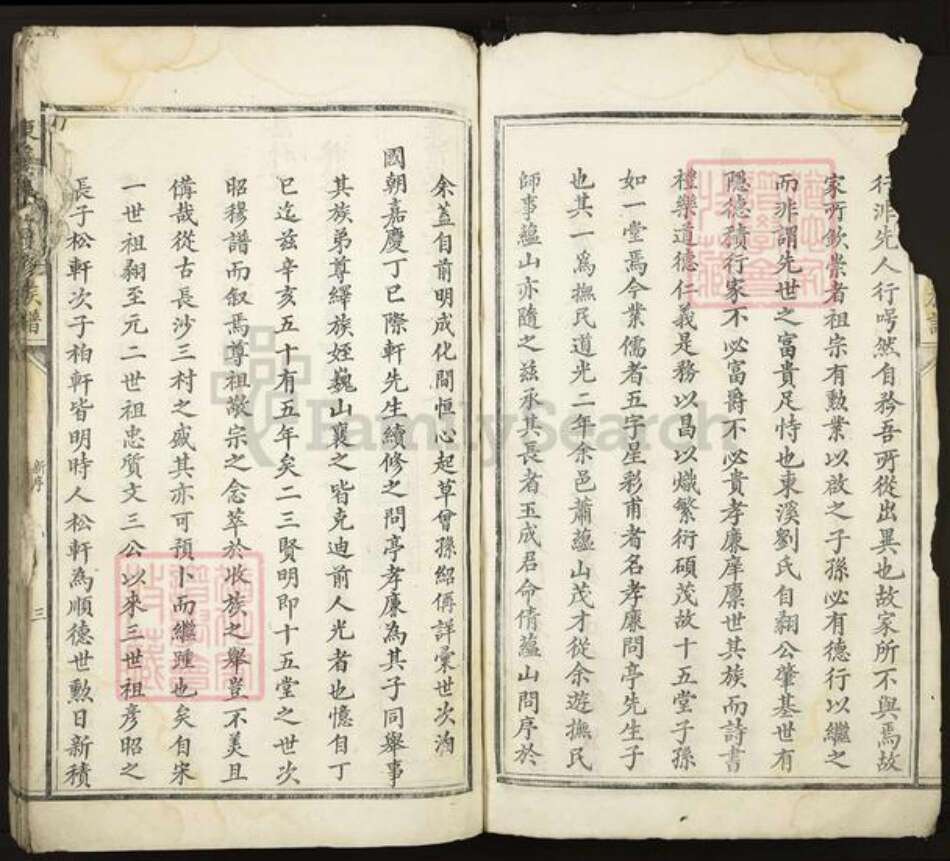 行非先人行咢然自矜吾所從出異也故家所不與焉故
家所欽崇者祖宗有勲業以啟之子孫必有德行以繼之
而非謂先世之富貴足恃也東溪劉氏自翱公肇基世有
隱德積行家不必富爵不必貴孝廉庠廪世其族而詩書
禮樂道德仁義是務以昌以熾繁衍碩茂故十五堂子孫
如一堂焉今業儒者五字星彩甫者名孝廉問亭先生子
也其一為撫民道光二年余邑蕭蘊山茂才從余遊撫民
師事蘊山亦隨之茲承其長者玉成君命倩蘊山問序於
余葢自前明成化間恒心起草曾孫紹侢詳彙世次洵
國朝嘉慶丁巳際軒先生續修之問亭孝廉為其子同舉事
其族弟尊繹族姪巍山襄之皆克迪前人光者也憶自丁
巳迄茲辛亥五十有五年矣二三賢明即十五堂之世次
昭穆譜而叙焉尊祖敬宗之念萃於收族之舉豈不美且
備哉從古長沙三村之盛其亦可預卜而繼踵也矣自宋
一世祖翱至元二世祖忠質文三公以來三世祖彥昭之
長子松軒次子柏軒皆明時人松軒為順德世勲日新積
族譜
新序
三
FamilySearch